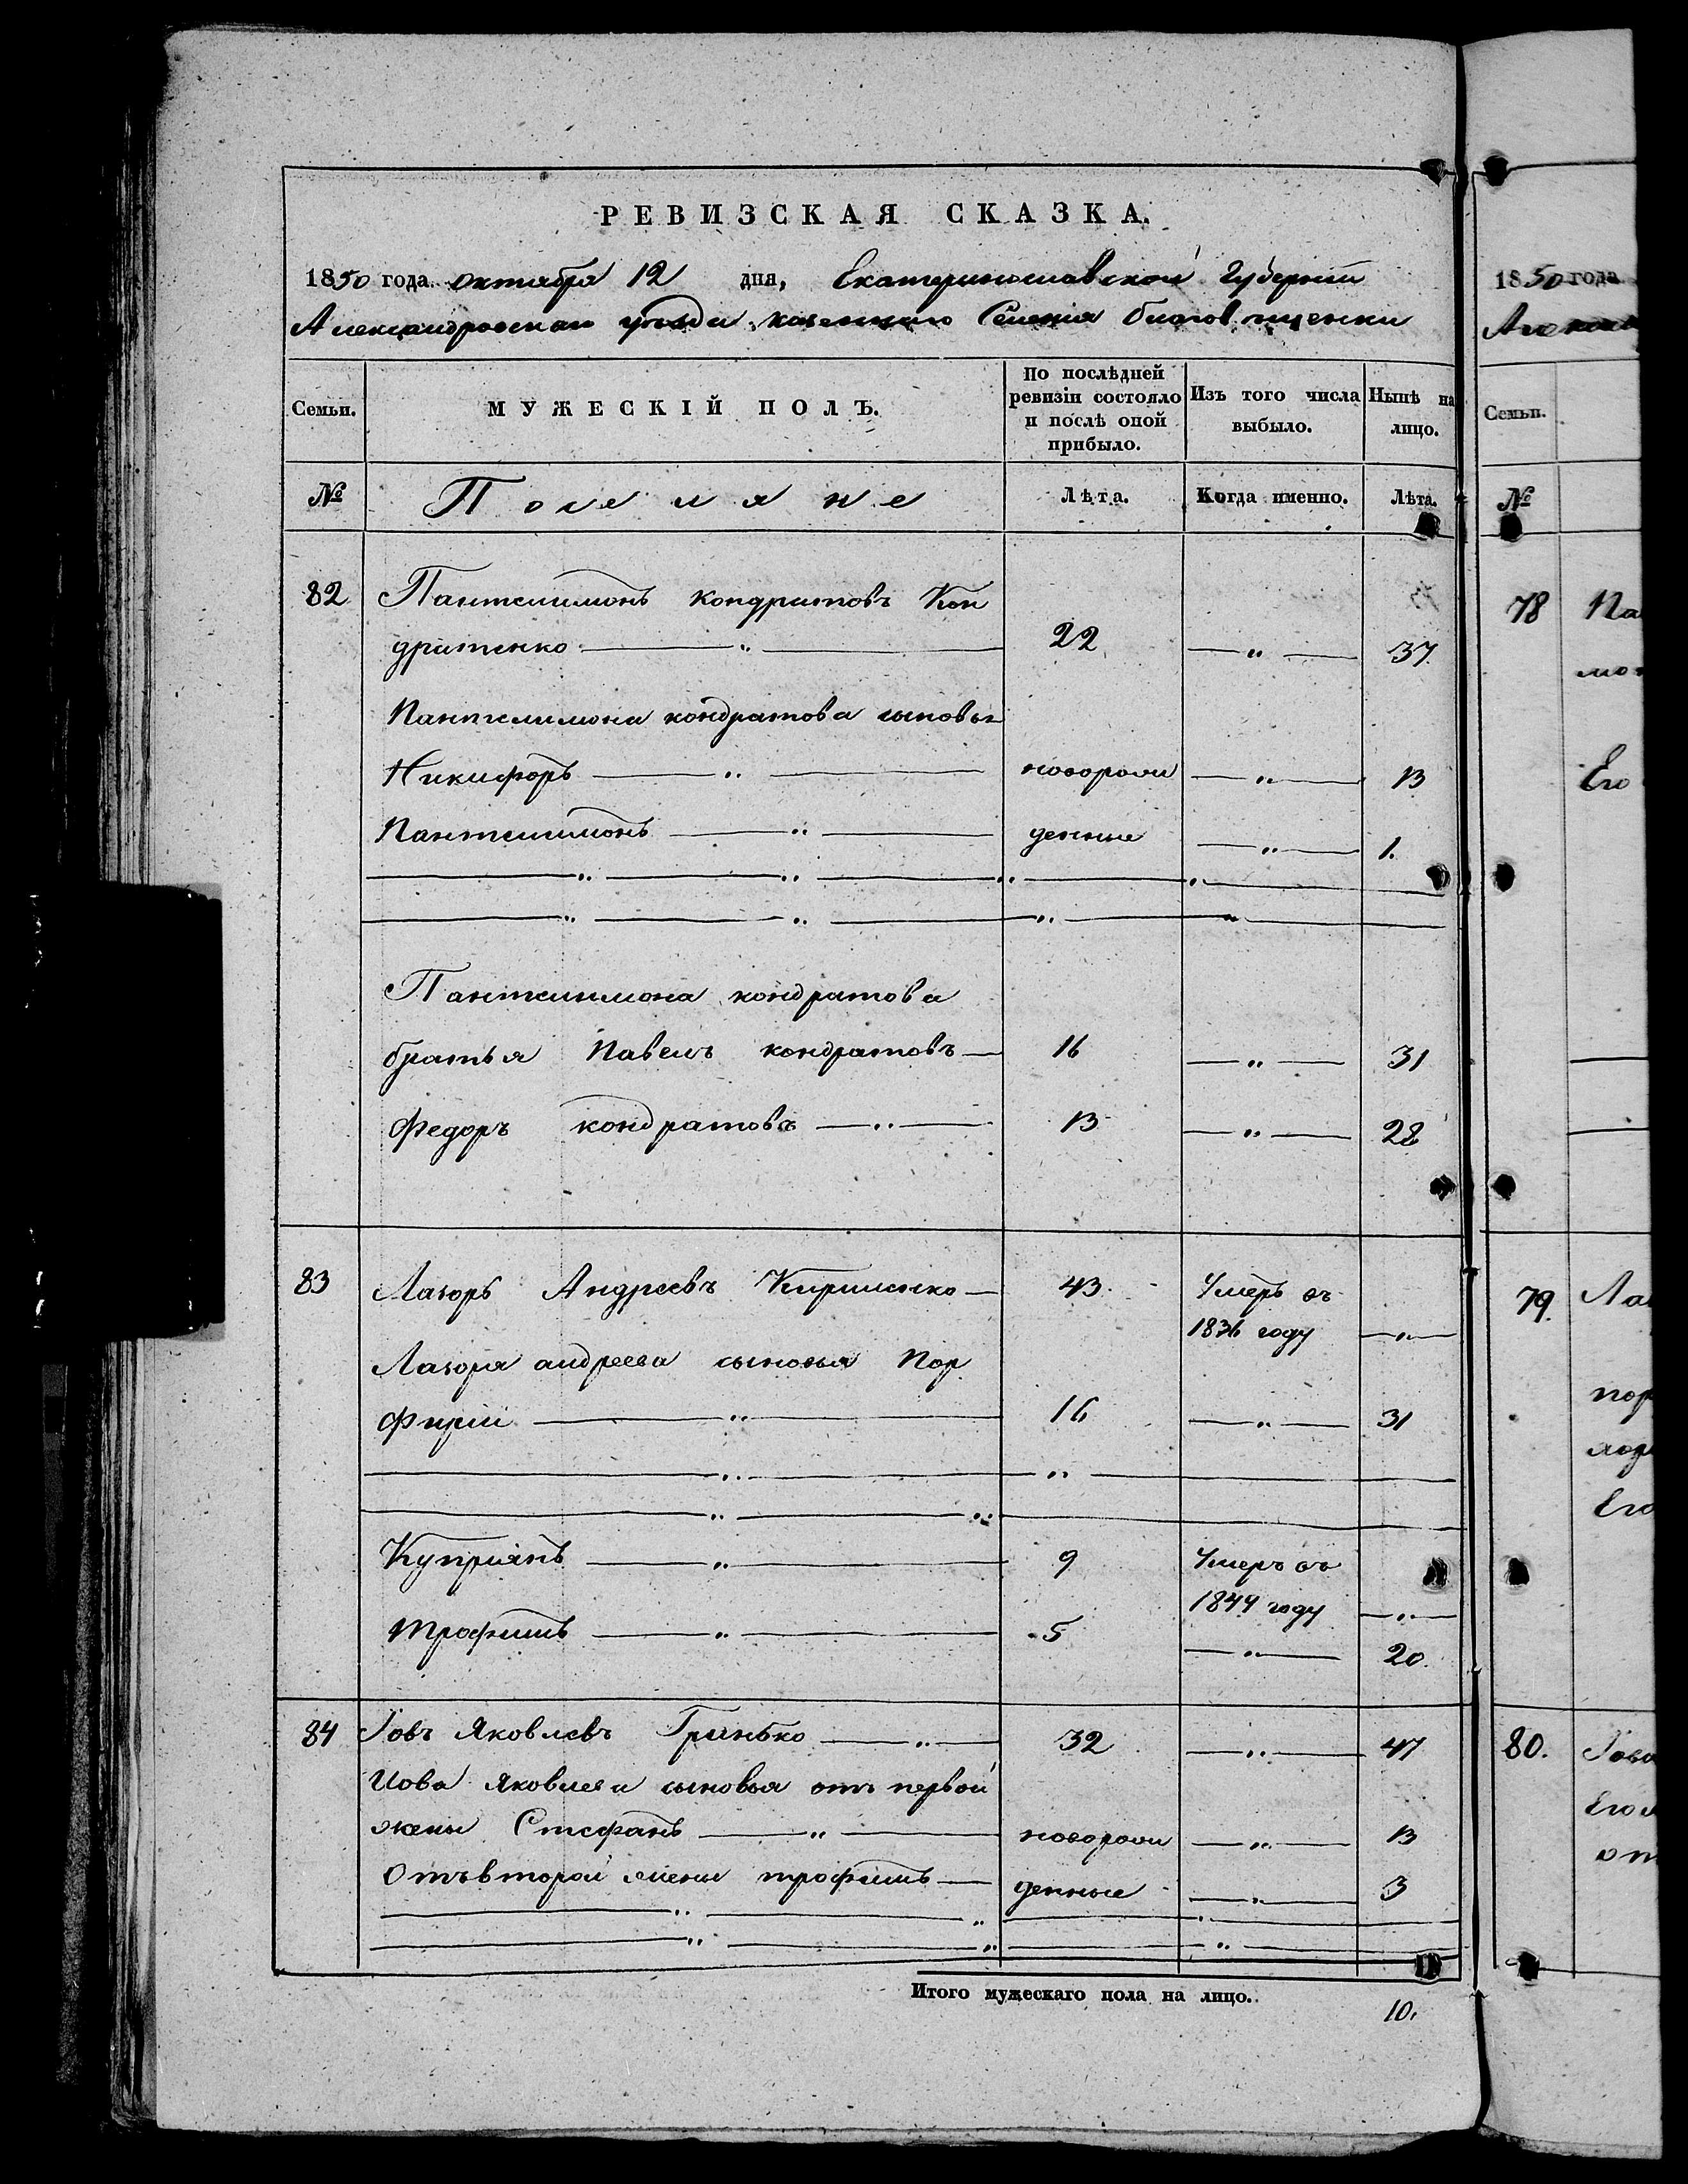 РЕВИЗСКАЯ СКАЗКА.
1850 года октября 12 дня, Екатеринославской Губернии
Александровскаго уѣзда казеннаго Селения благовѣщенки
Семьи.
МУЖЕСКІЙ ПОЛЪ.
По послѣдней ревизіи состояло и послѣ оной прибыло.
Изъ того числа выбыло.
Нынѣ на лицо.
№
Поселяне
Лѣта.
Когда именно.
Лѣта.
82 Пантелимонъ кондратовъ Кон
дратенко — " — 22 — " — 37
Пантелимона кондратова сыновья
Никифоръ — " — новорож — " — 13
Пантелимонъ — " — денные — " — 1.
Пантелимона кондратова
братья Павелъ кондратовъ — 16 — " — 31
Федоръ кондратовъ — " — 13 — " — 28
83 Лазоръ Андреевъ Кириленко — 43. Умеръ въ
1836 году — " —
Лазоря андреева сыновья Пор
фирій — " — 16 — " — 31
Куприянъ — " — 9 Умеръ въ
1844 году — " —
Трофимъ — " — 5 — " — 20.
84 Iовъ Яковлевъ Гринько — " — 32 — " — 47
Иова Яковлева сыновья отъ первой
жены Стефанъ — " — новорож — " — 13
Отъ второй жены трофимъ — денные — " — 3
Итого мужескаго пола на лицо. 10.
1850 года
Семьи.
№
78
мо
Его
79. Лаз
пор
Его
80. Iова
Его
от